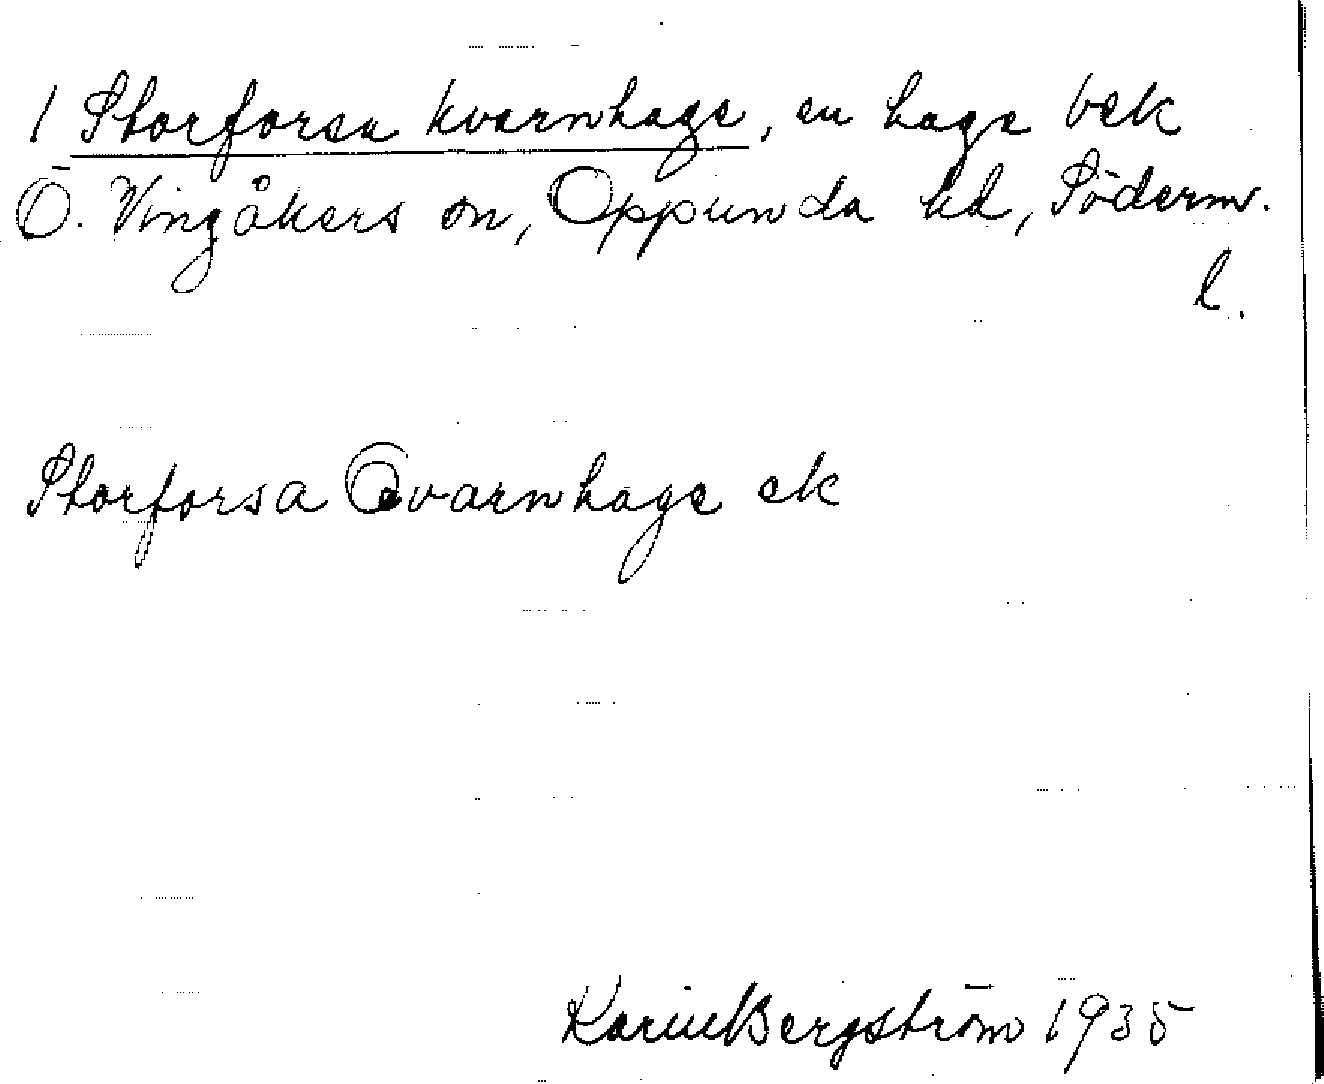 1 Storforsa kvarnhage, en hage bek
Ö. Vingåkers sn, Oppunda hd, Söderm.
l.
Storforsa Qvarnhage ek
Karin Bergström 1935